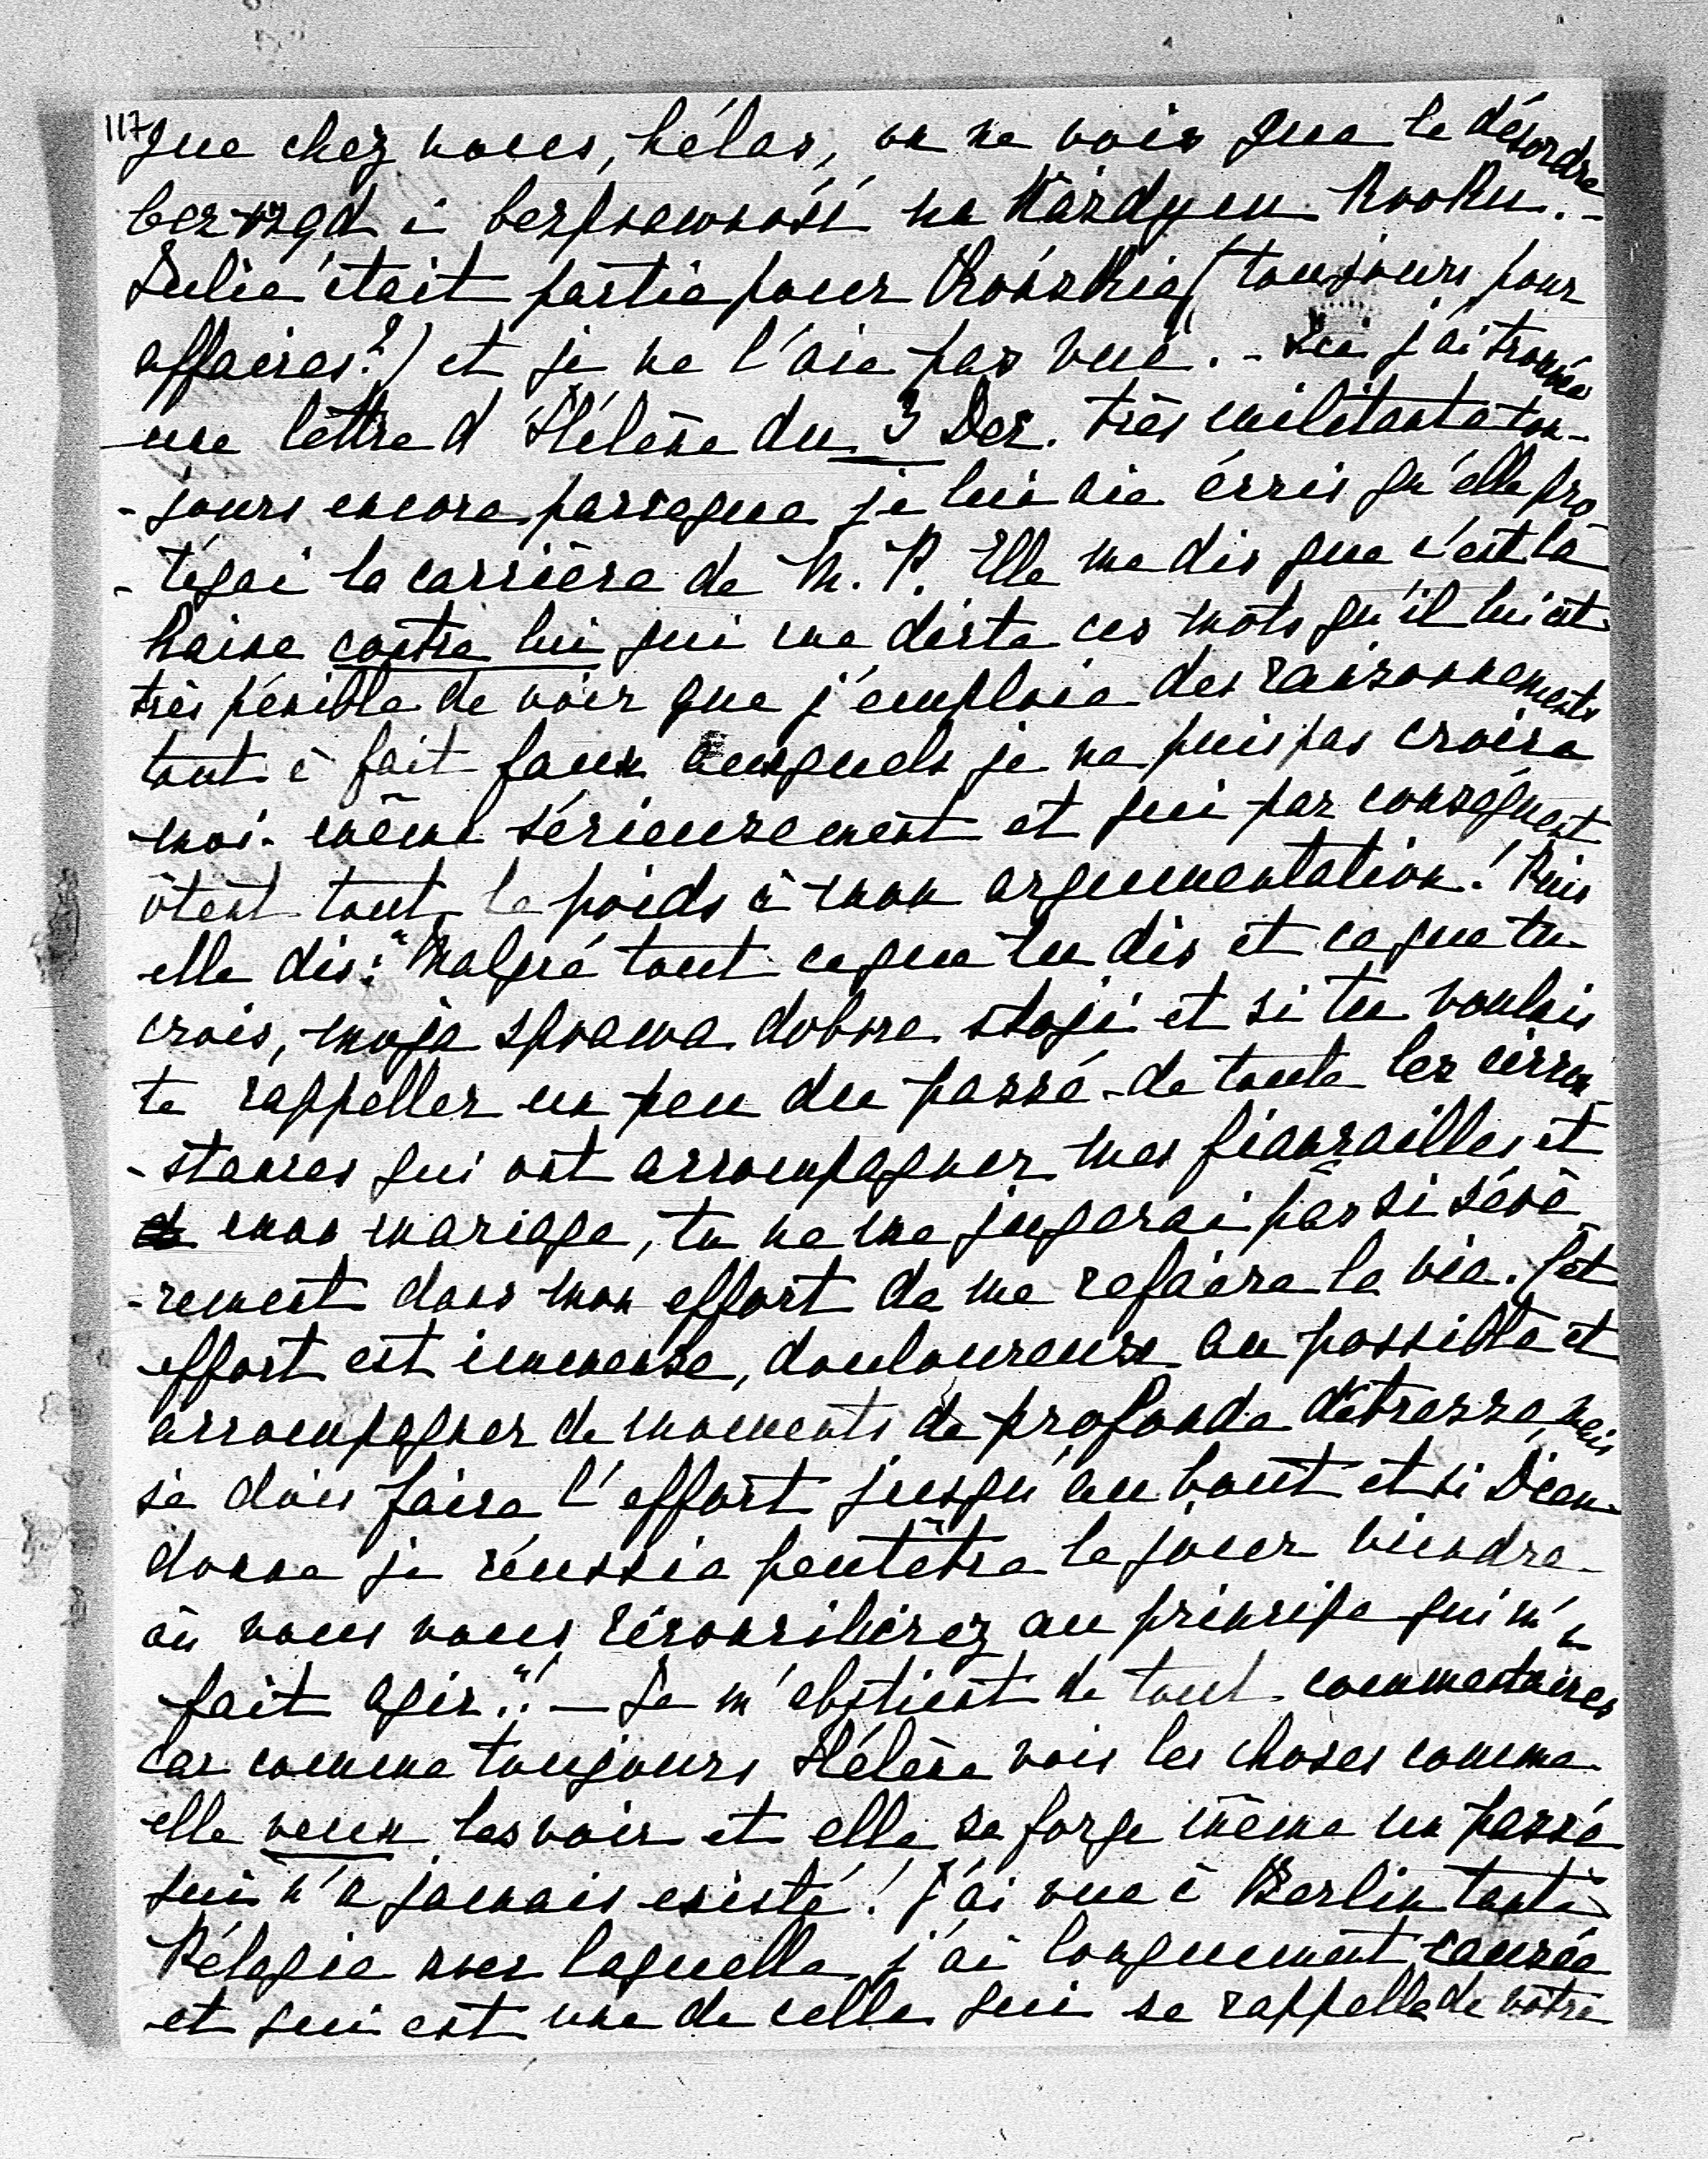 117
que chez nous, hélas, on ne vois que le désordre
bezrząd i bezprawność na każdym kroku. -
Julie était partie pour Krońskie (toujours pour
affaires?) et je ne l'aie pas vue. - Ici j'ai trouvée
une lettre d'Hélène du 3 Dez. très militante tou-
-jours encore parceque je lui aie écris qu'elle pro
-tégai la carrière de M. P. Elle me dis que c'est la
haine contre lui qui me dicte ces mots qu'il lui est
très pénible de voir que j'emploie des raisonnements
tout à fait faux auxquels je ne puis pas croire
moi-même sérieusement et qui par conséquent
ôtent tout le poids à mon argumentation! Puis
elle dis: "Malgré tout ce que tu dis et ce que tu
crois, moja sprawa dobrze stoji et si tu voulais
te rappeller un peu du passé - de toute les circon
-stances qui ont accompagner mes fiançailles et
mon mariage, tu ne me jugerai pas si sévè
-rement dans mon effort de me refaire la vie. Cet
effort est immense, douloureuse au possible et
accompagner de moments de profonde détresse, mais
je dois faire l'effort jusqu'au bout et si Dieu
donne je réussie peutêtre le jour viendra
où vous vous réconcilierez au principe qui m'a
fait agir."! — Je m'abstient de tout commentaires
car comme toujours Hélène vois les choses comme
elle veux les voir et elle se forge même un passé
qui n'a jamais existé! J'ai vue à Berlin tante
Pélagie avec laquelle j'ai longuement causée
et qui est une de celle qui se rappelle de votre